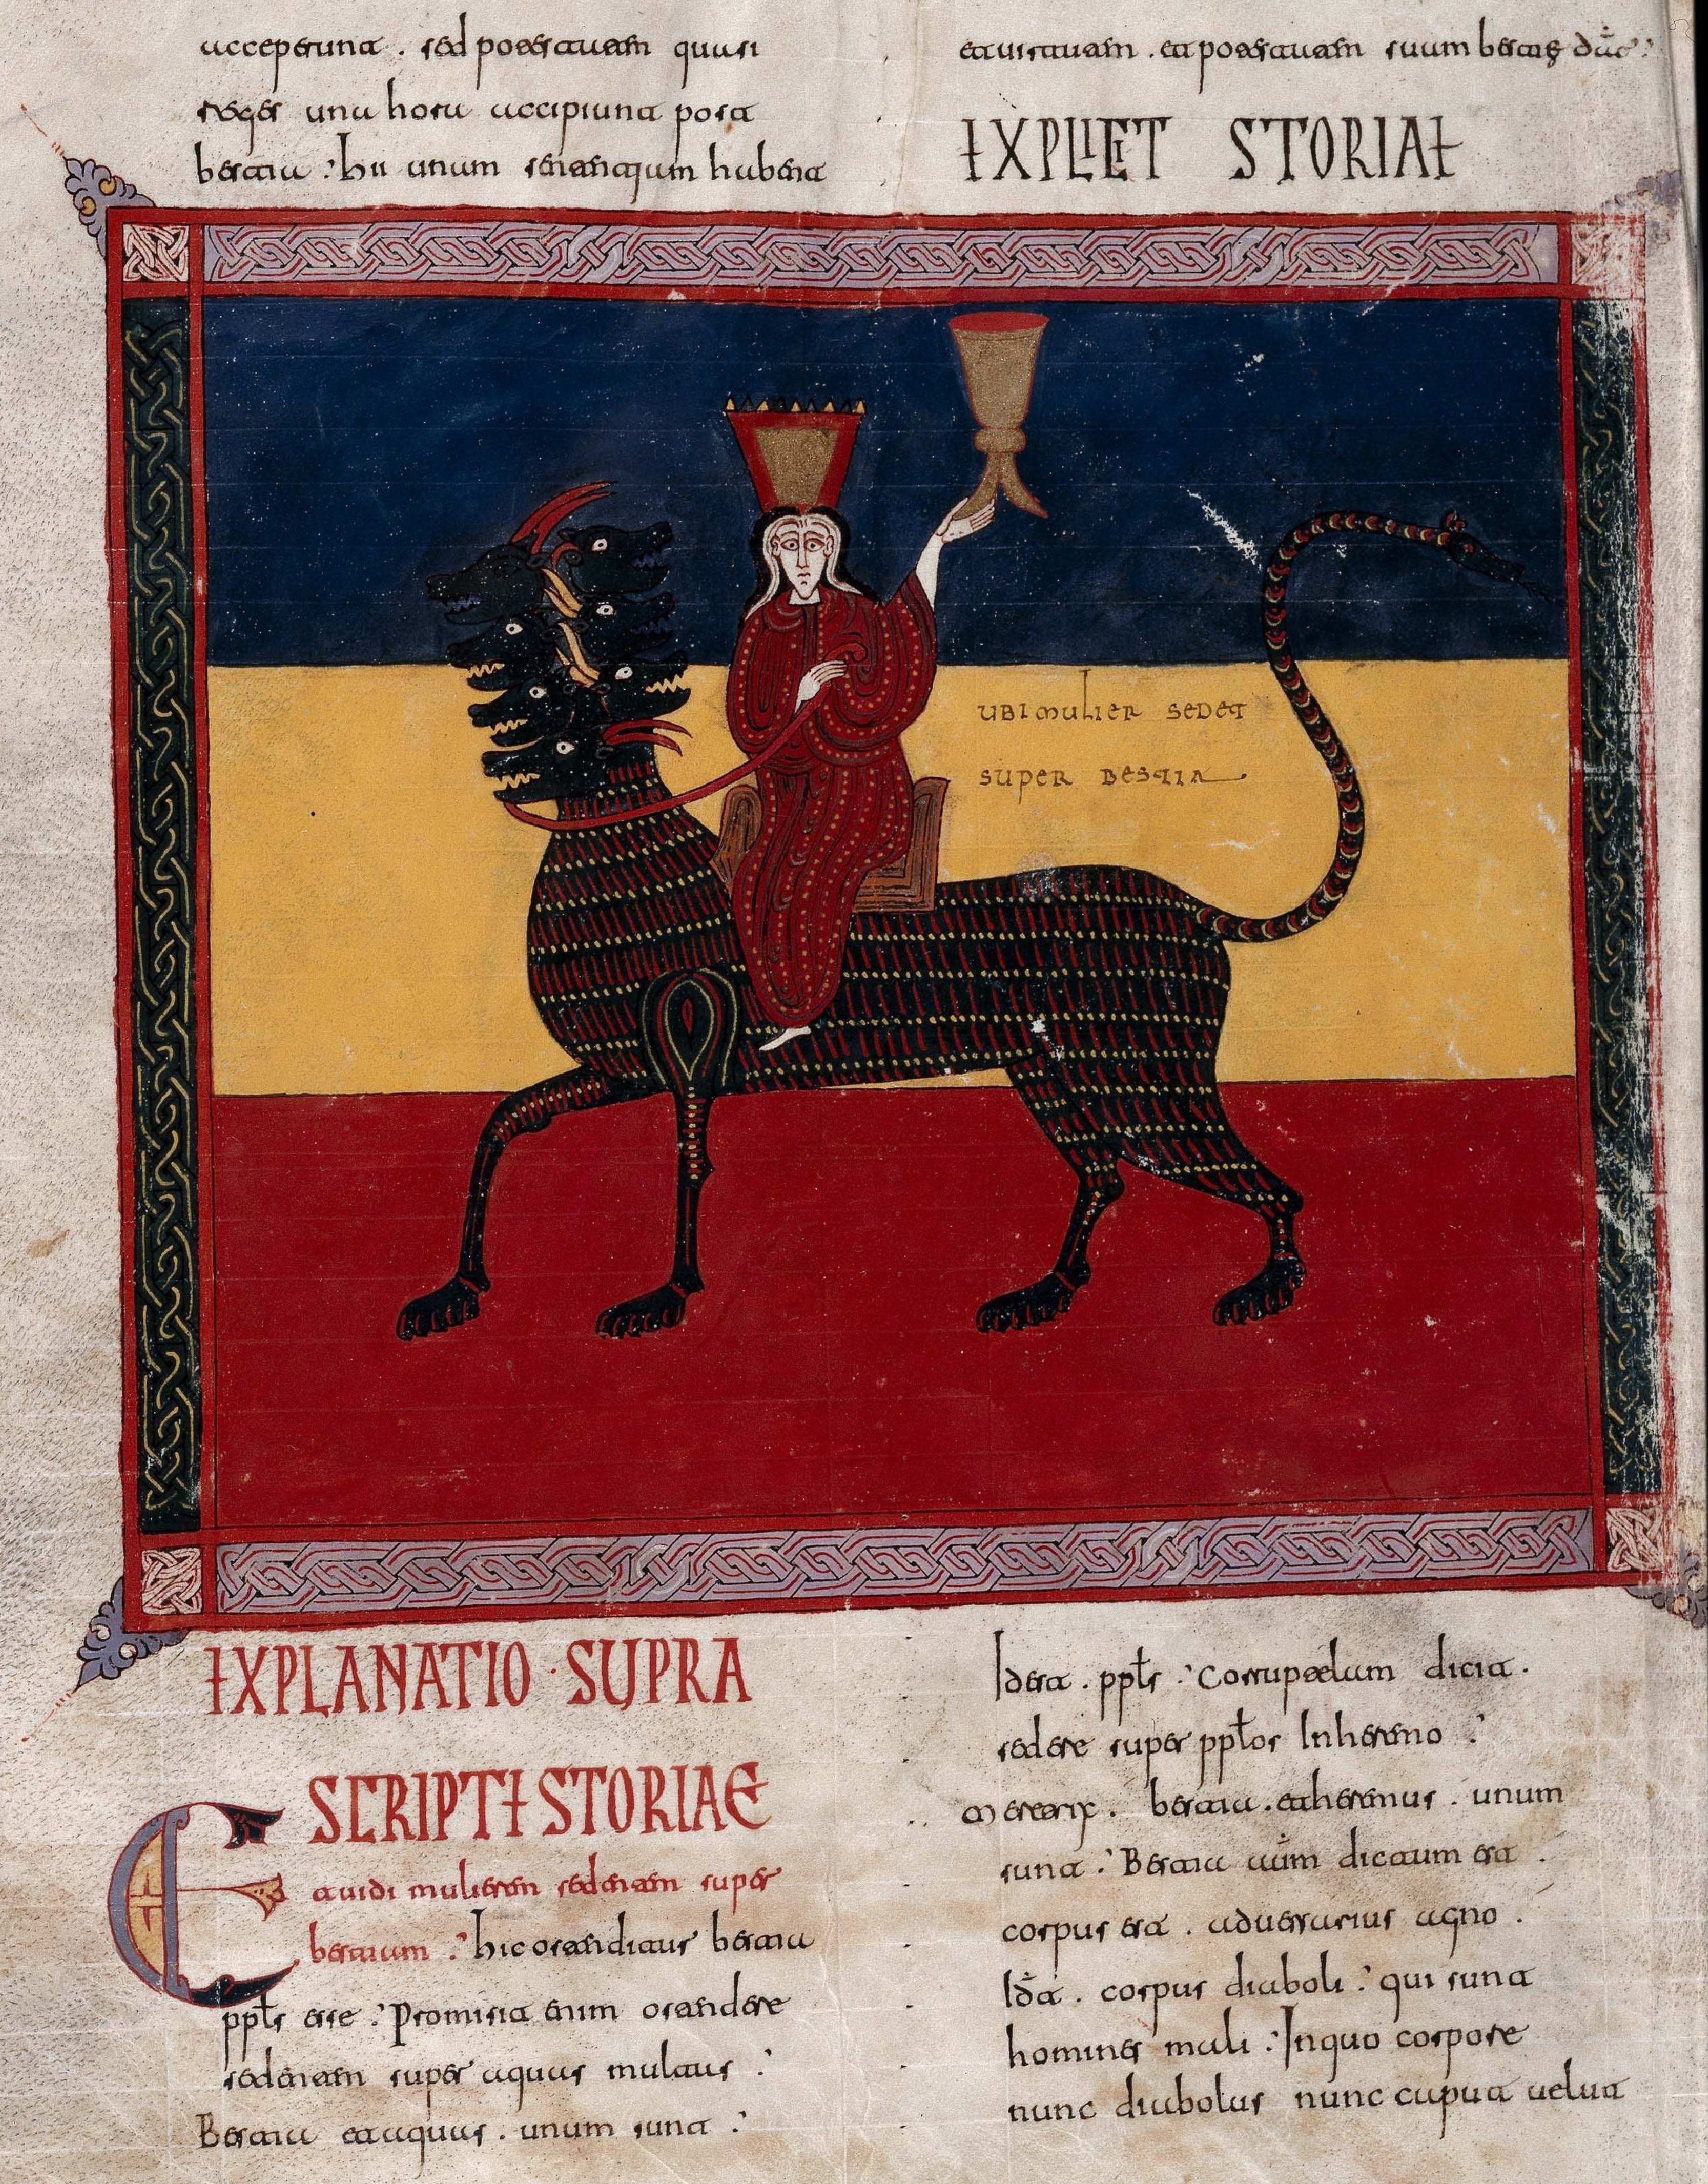 acceperunt . sed potestatem quasi
reges una hora accipiunt post
bestia : hii unum sententiam habent
et virtutem . et potestatem suum bestie
EXPLICIT STORIAE
UBI MULIER SEDET
SUPER BESTIA
EXPLANATIO SUPRA
SCRIPTE STORIAE
Et vidi mulierem sedentem super
bestiam : hic ostenditur bestia
ppls esse : Promisit enim ostendere
sedentem super aquas multas :
Bestia et aquas . unum sunt :
Idest . ppls : Corruptelam dicit .
sedere super pplos In heremo :
meretrix . bestia . et heremus . unum
sunt : Bestia ut dictum est .
corpus est . adversarius agno .
Idt . corpus diaboli : qui sunt
homines mali : In quo corpore
nunc diabolus nunc caput velut